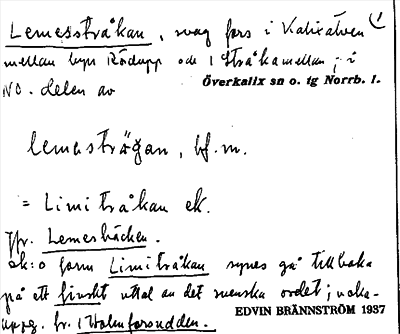 Lemesstråkan, svag fors i Kalixälven
mellan byn Rödupp och Stråkamellan; i
NO. delen av
Överkalix sn o. tg Norrb. l.
lemestrågan, bf. m.
= Limitråkan ek.
Jfr. Lemesbäcken.
ek:s form Limitråkan synes gå tillbaka
på ett finskt uttal av det svenska ordet;
uppg. fr.
EDVIN BRÄNNSTRÖM 1937